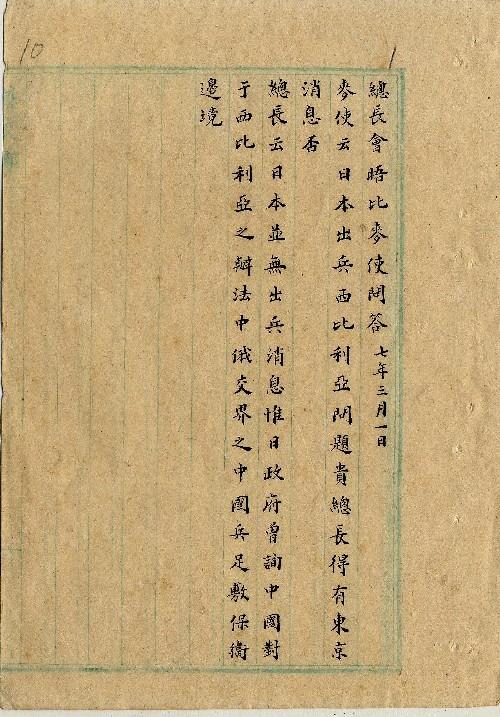 10
1
總長會晤比麥使問答 七年三月一日
麥使云日本出兵西比利亞問題貴總長得有東京
消息否
總長云日本並無出兵消息惟日政府曾詢中國對
于西比利亞之辦法中俄交界之中國兵足敷保衞
邊境